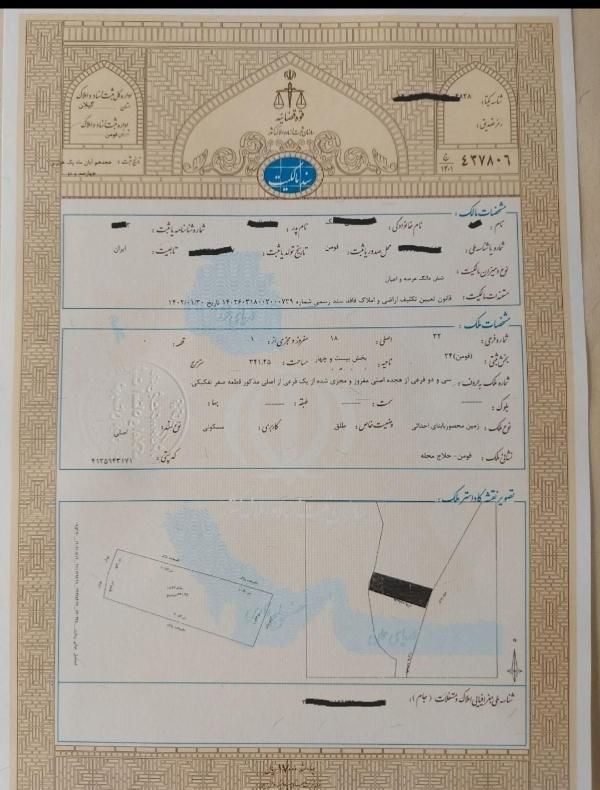 اداره کل ثبت اسناد و املاک
استان: گیلان
اداره ثبت اسناد و املاک
فومن
قوه قضائیه
سازمان ثبت اسناد و املاک کشور
شناسه یکتا:
رمز تصدیق:
تاریخ ثبت: هجدهم آبان ماه یک هزار و
چهارصد و دو
۴۳۷۸۰۶ ج
۱۴۰۱
سند مالکیت
مشخصات مالک:
نام: نام خانوادگی: نام پدر: شماره شناسنامه یا ثبت:
شماره یا شناسه ملی: محل صدور یا ثبت: فومن تاریخ تولد یا ثبت: تابعیت: ایران
نوع و میزان مالکیت: شش دانگ عرصه و اعیان
مستندات مالکیت: قانون تعیین تکلیف اراضی و املاک فاقد سند رسمی شماره ۱۴۰۲۶۰۳۱۸۰۰۲۰۰۰۷۳۹ تاریخ ۱۴۰۲/۰۱/۳۰
مشخصات ملک:
شماره فرعی: ۳۲ اصلی: ۱۸ مفروز و مجزی از: ۱ قطعه: ۰
بخش ثبتی: (فومن)۲۴ ناحیه: بخش بیست و چهار مساحت: ۳۴۱.۴۵ مترمربع
شماره ملک به حروف: سی و دو فرعی از هجده اصلی مفروز و مجزی شده از یک فرعی از اصلی مذکور قطعه صفر تفکیکی
بلوک: سمت: طبقه: بها:
نوع ملک: زمین محصور با بنای احداثی وضعیت خاص: طلق کاربری: مسکونی نوع سند: اصلی
نشانی ملک: فومن- حلاج محله کد پستی: ۴۱۳۵۹۴۳۱۷۱
تصویر نقشه کاداستر ملک:
شناسه ملی جغرافیایی املاک و مستغلات (جام):